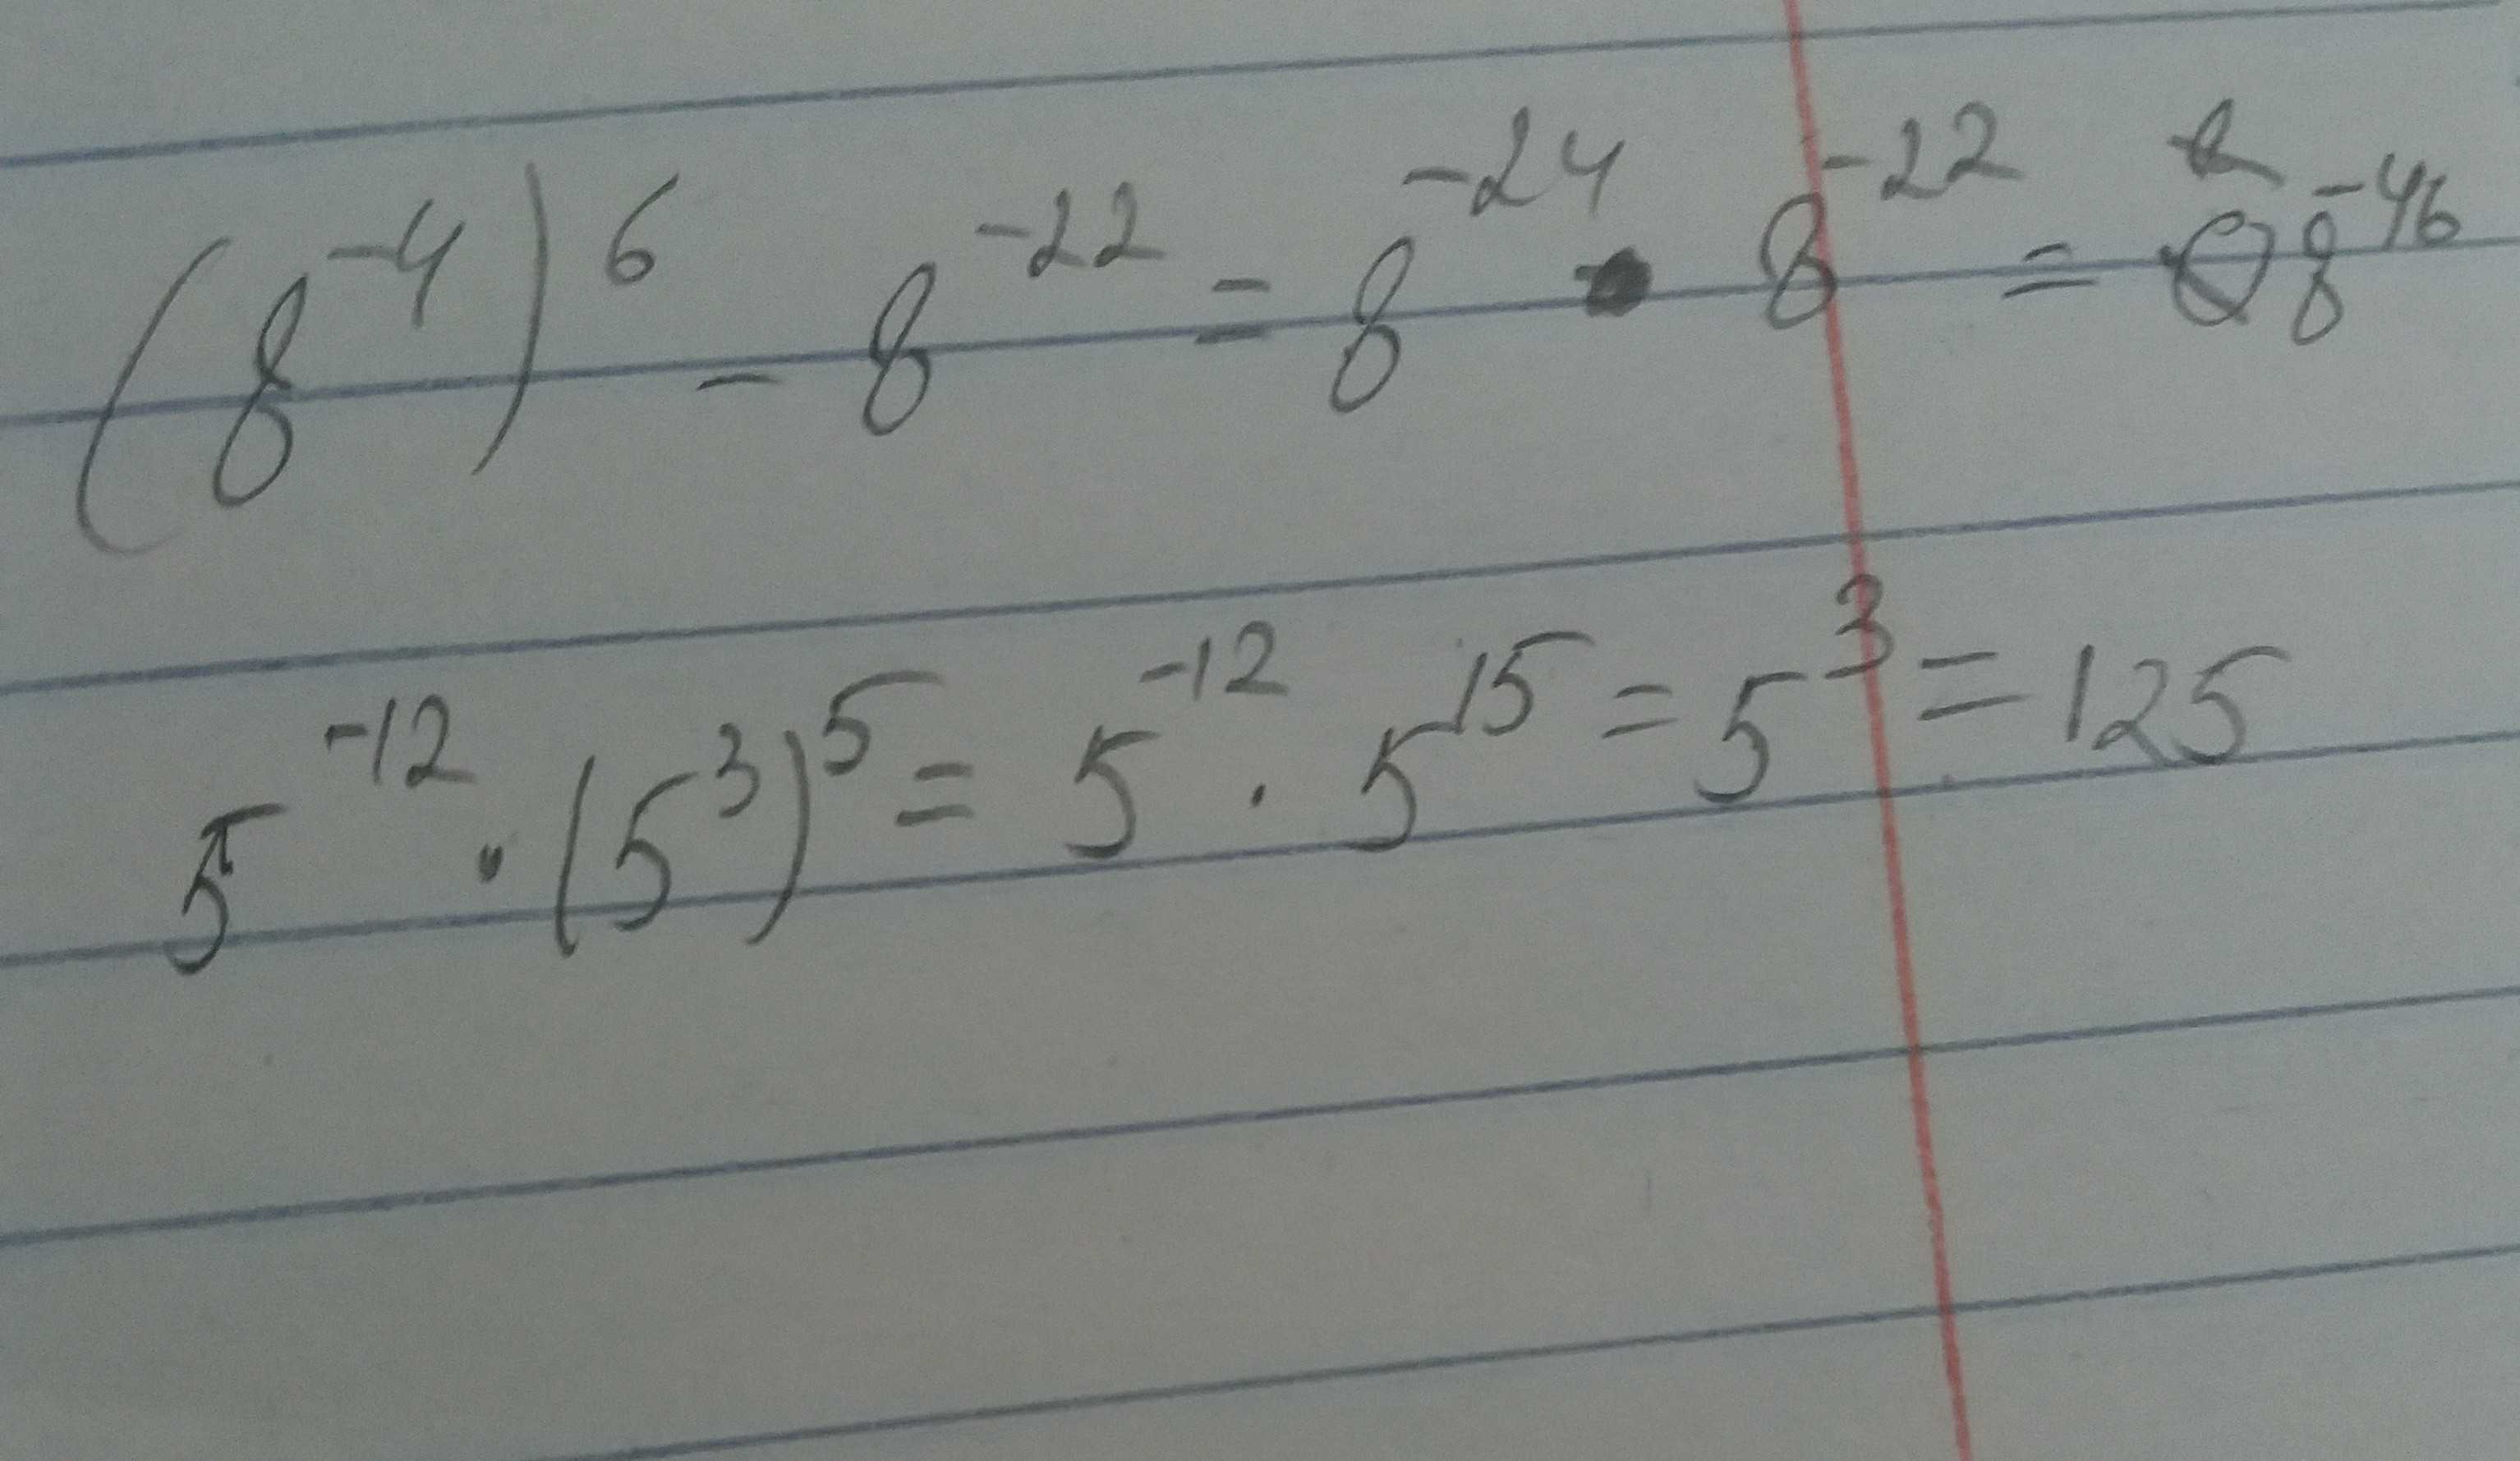 (8^-4)^6 - 8^-22 = 8^-24 · 8^-22 = 8^-46
5^-12 · (5^3)^5 = 5^-12 · 5^15 = 5^3 = 125